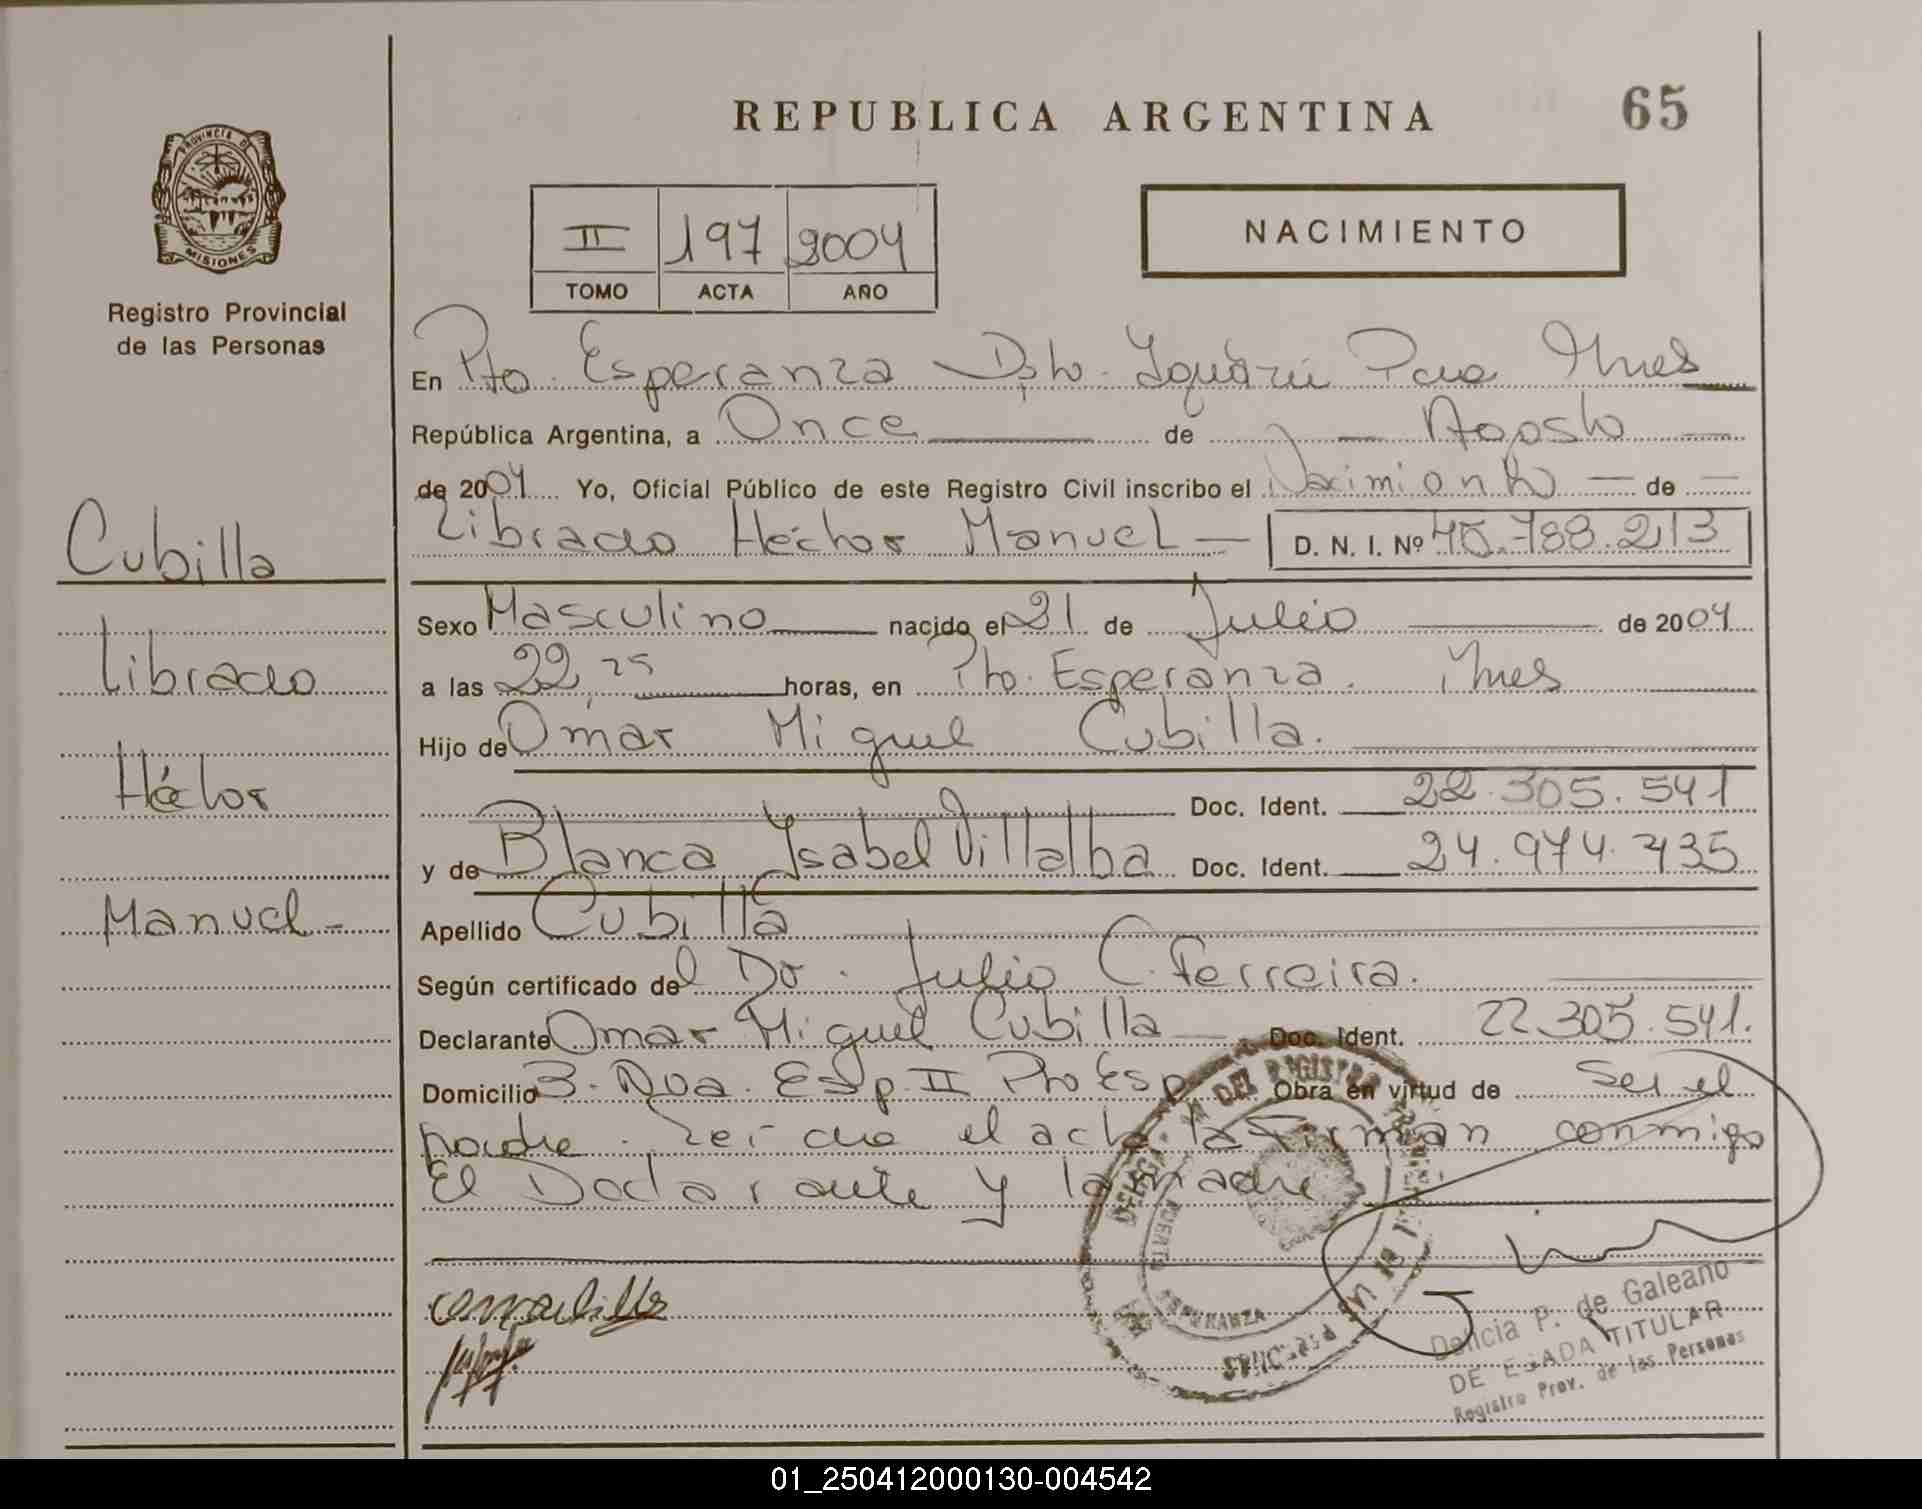 REPUBLICA ARGENTINA
65
PROVINCIA D
MISIONES
Registro Provincial
de las Personas
II 197 2004
TOMO ACTA AÑO
NACIMIENTO
En Pto. Esperanza Dpto. Iguazú Pcia Mnes
República Argentina, a Once de Agosto
de 2004 Yo, Oficial Público de este Registro Civil inscribo el Nacimiento de
Librado Héctor Manuel D. N. I. Nº 45.788.213
Cubilla
Librado
Héctor
Manuel
Sexo Masculino nacido el 21 de Julio de 2004
a las 22,25 horas, en Pto. Esperanza. Mnes
Hijo de Omar Miguel Cubilla.
Doc. Ident. 22.305.541
y de Blanca Isabel Villalba Doc. Ident. 24.974.735
Apellido Cubilla
Según certificado del Dr. Julio C. Ferreira.
Declarante Omar Miguel Cubilla Doc. Ident. 22.305.541.
Domicilio B. Nva. Esp. II Pto Esp Obra en virtud de ser el
padre. Leída el acta la Firman conmigo
El Declarante y la madre
DEL REGISTRO
PUERTO ESPERANZA
Delicia P. de Galeano
TITULAR
Registro Prov. de las Personas
01_250412000130-004542